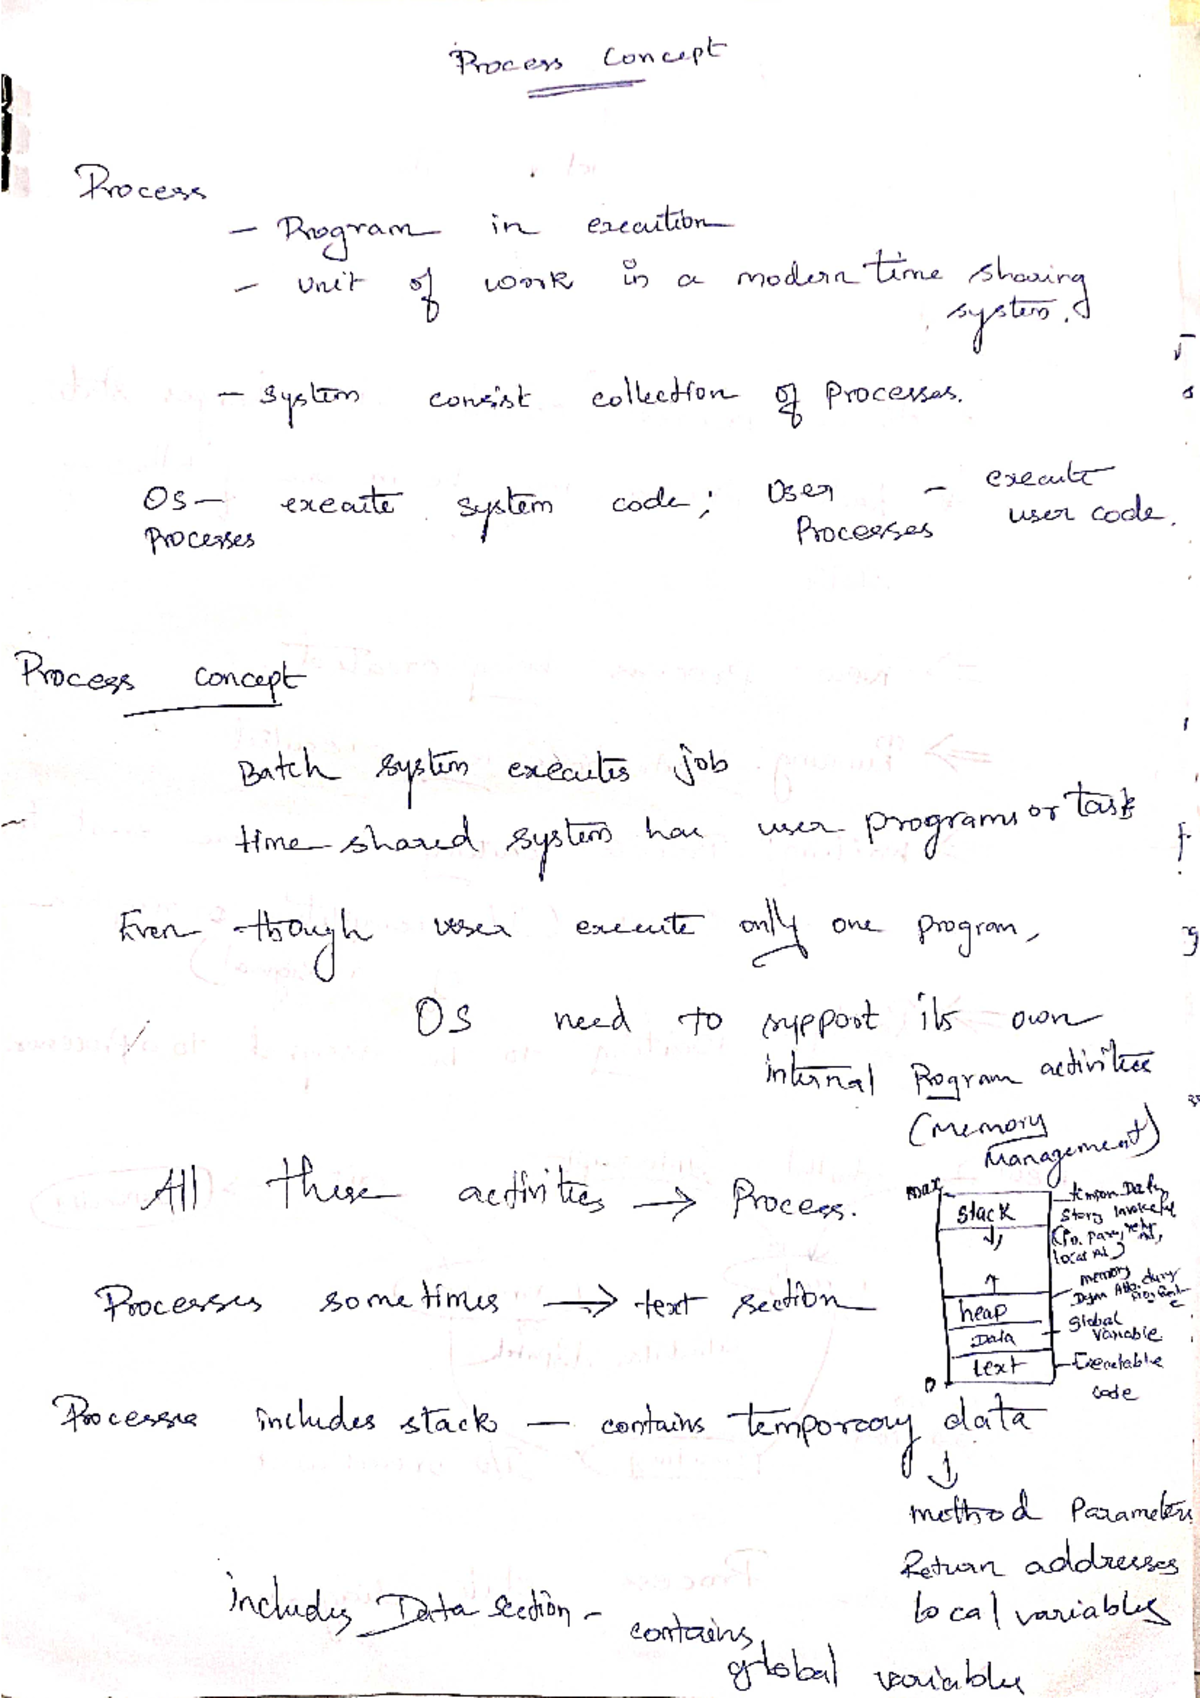 Process Concept
Process
- Program in execution
- Unit of work in a modern time sharing
system.
- System consist collection of processes.
OS - execute system code; User - execute
Processes Processes user code.
Process concept
Batch system executes job
time-shared system has user programs or task
Even though user execute only one program,
OS need to support its own
internal Program activities
(Memory
Management)
All these activities → Process.
max
stack
Processes sometimes → text section
heap
Data
text
0
memory
Global
variable
Executable
code
Processes includes stack - contains temporary data
method Parameters
Return addresses
local variables
includes Data section - contains
global variables